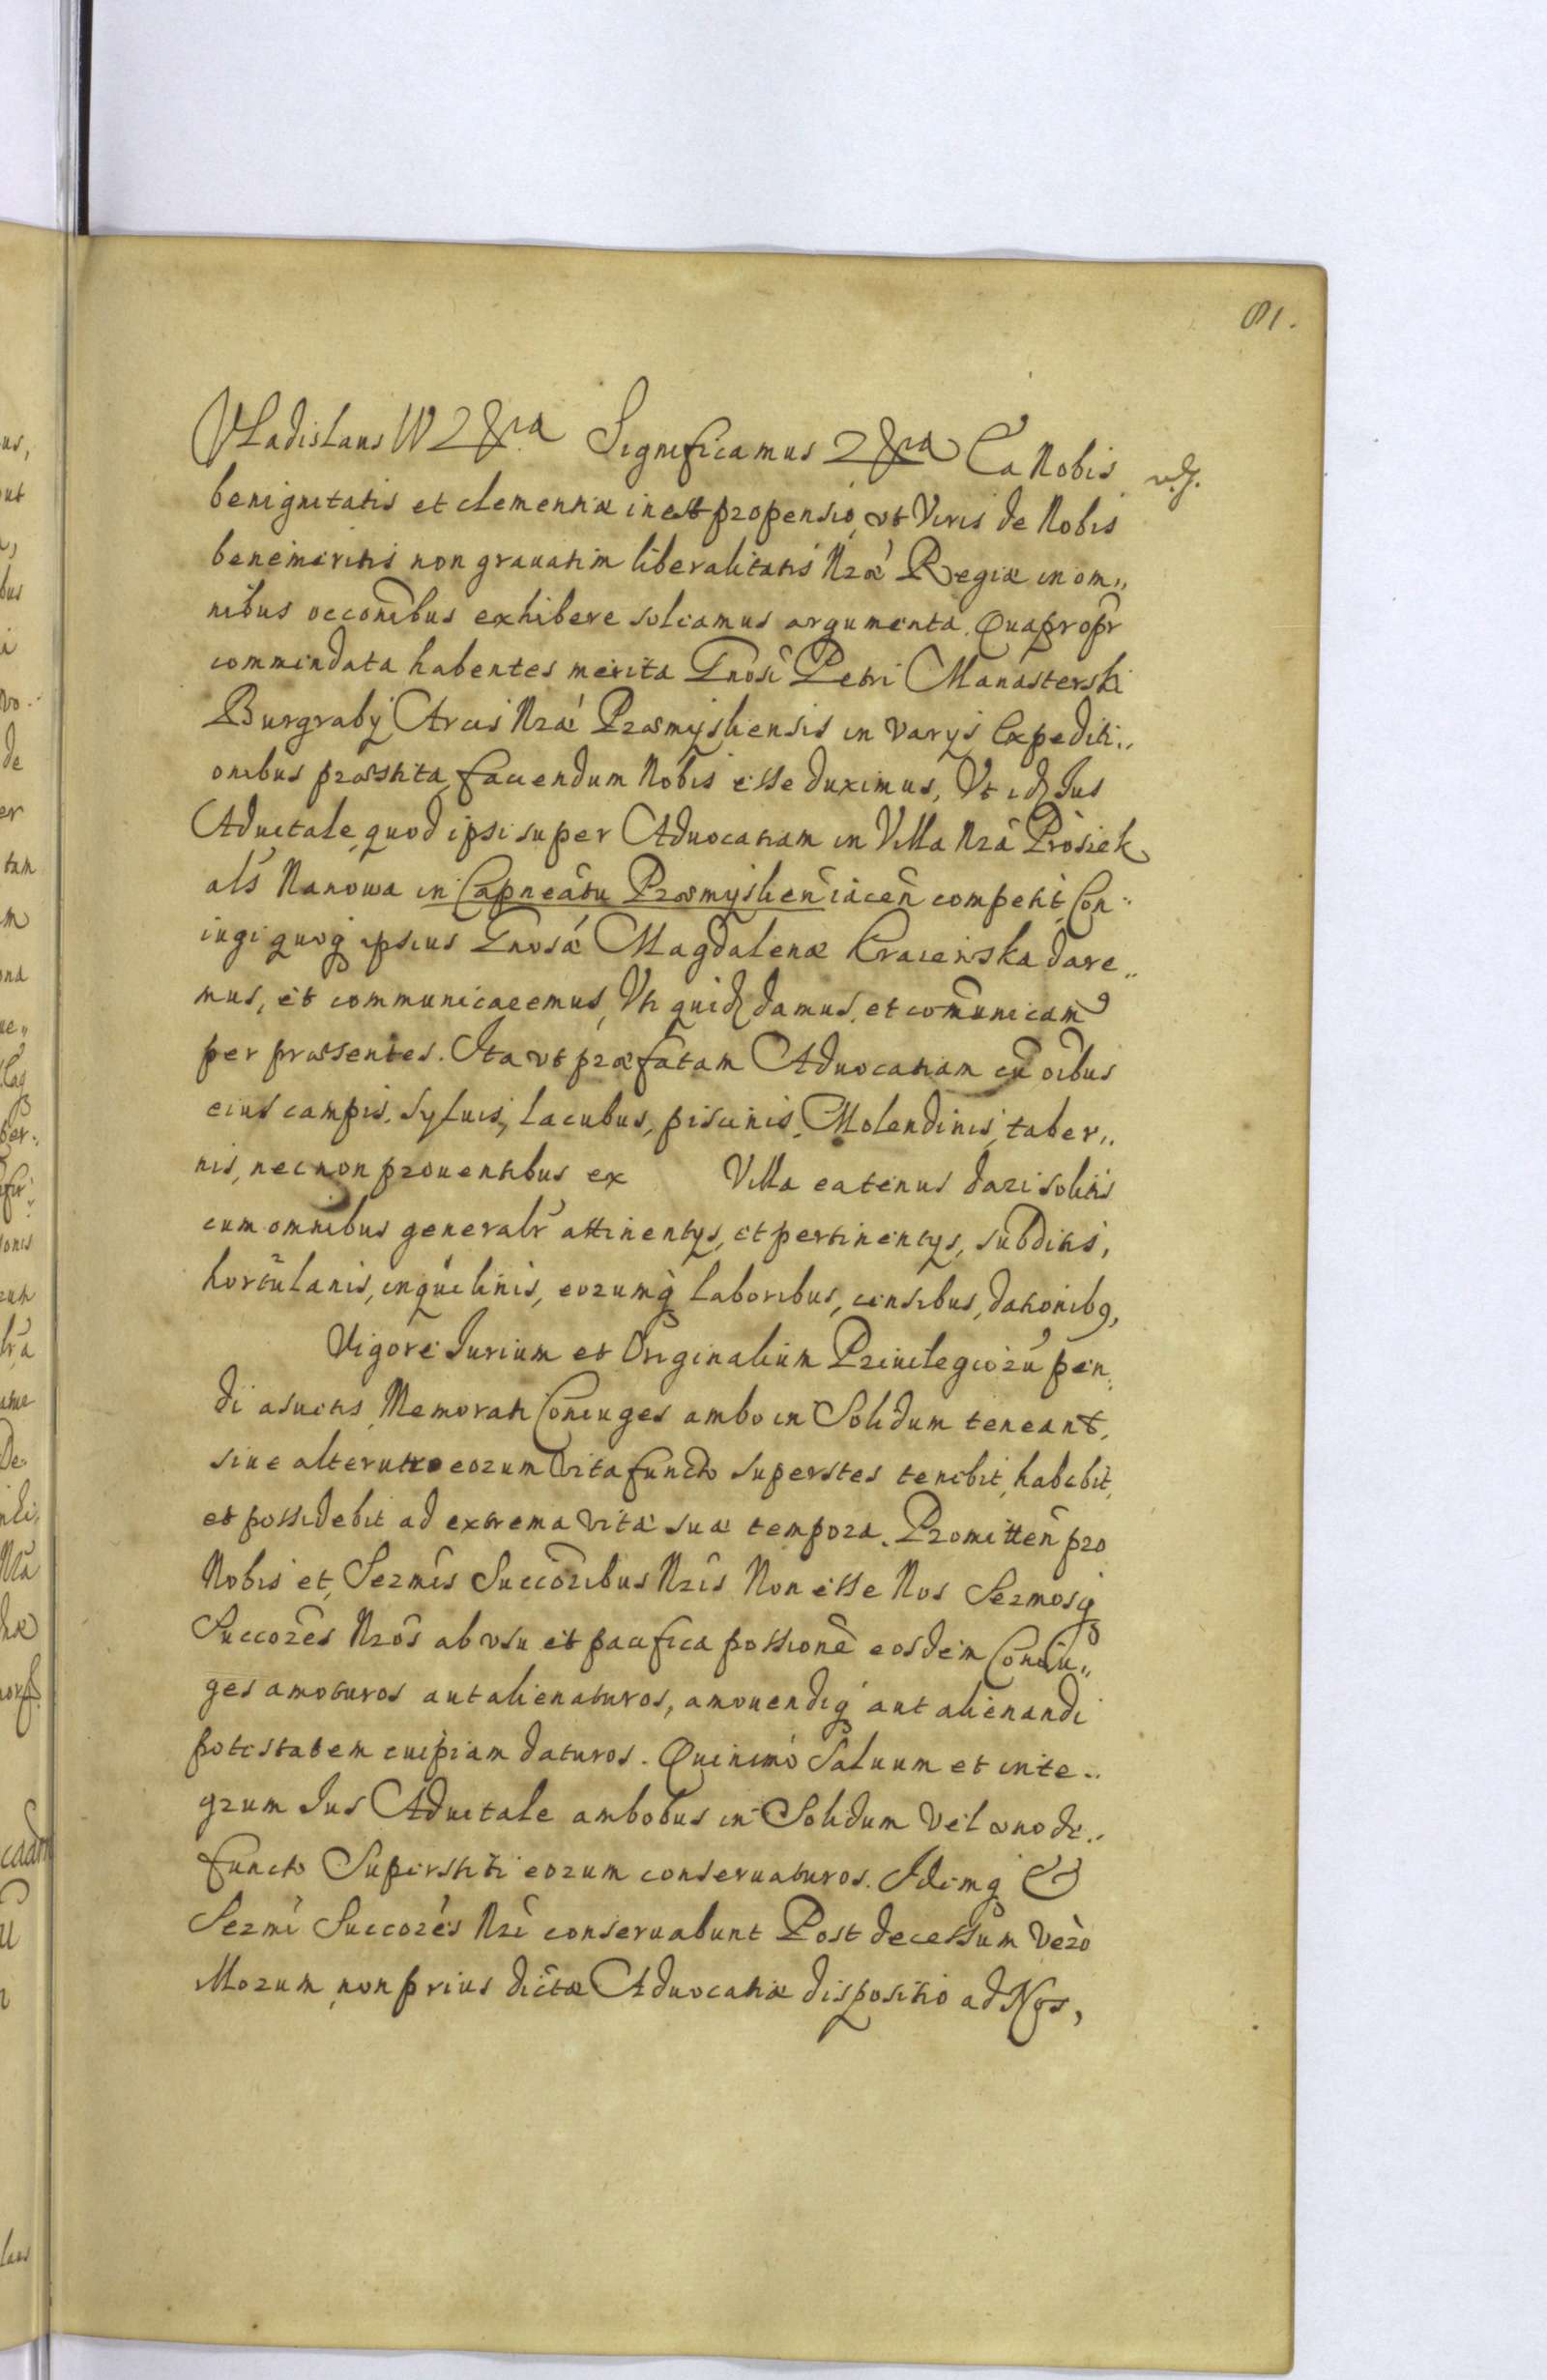 81.
Vladislaus IV &c̃ra Significamus &c̃ra Ea Nobis
benignitatis et clementiæ inest propensio, vt Viris de Nobis
benemeritis non grauatim liberalitatis Nræ Regiæ in om„
nibus occonibus exhibere soleamus argumenta. Quapropr
commendata habentes merita Gnosi Petri Manasterski
Burgrabÿ Arcis Nræ Præmysliensis in varÿs Expediti„
onibus præstita, faciendum Nobis esse duximus, Vt id Ius
Aduitale, quod ipsi super Aduocatiam in Villa Nra Prosiek
als Nanowa in Capneatu Præmyslien iacen competit, Con„
iugi quoq ipsius Gnosæ Magdalenæ Kraienska dare„
mus, et communicaremus, Vti quid damus, et comunicam9
per præsentes. Ita vt præfatam Aduocatiam cu oibus
eius campis, Syluis, Lacubus, piscinis, Molendinis, taber„
nis, necnon prouentibus ex Villa eatenus dari solitis
cum omnibus generalr attinentÿs, et pertinentÿs, subditis,
hortulanis, inquilinis, eorumq laboribus, censibus, dationib9,
Vigore Iurium et Originalium Priuilegioru pen„
di asuetis Memorati Coniuges ambo in Solidum teneant,
siue alterutro eorum Vita functo superstes tenebit, habebit,
et possidebit ad extrema vitæ suæ tempora. Promitten pro
Nobis et Sermis Succoribus Nris Non esse Nos Sermosq
Succores Nros ab vsu et pacifica possione eosdem Coniu„
ges amoturos aut alienaturos, amouendiq aut alienandi
potestatem cuipiam daturos. Quinimo Saluum et inte„
grum Ius Aduitale ambobus in Solidum vel vno de„
functo Superstiti eorum conseruaturos. Idemq &
Sermi Succores Nri conseruabunt Post decessum vero
illorum, non prius dictæ Aduocatiæ dispositio ad Nos,